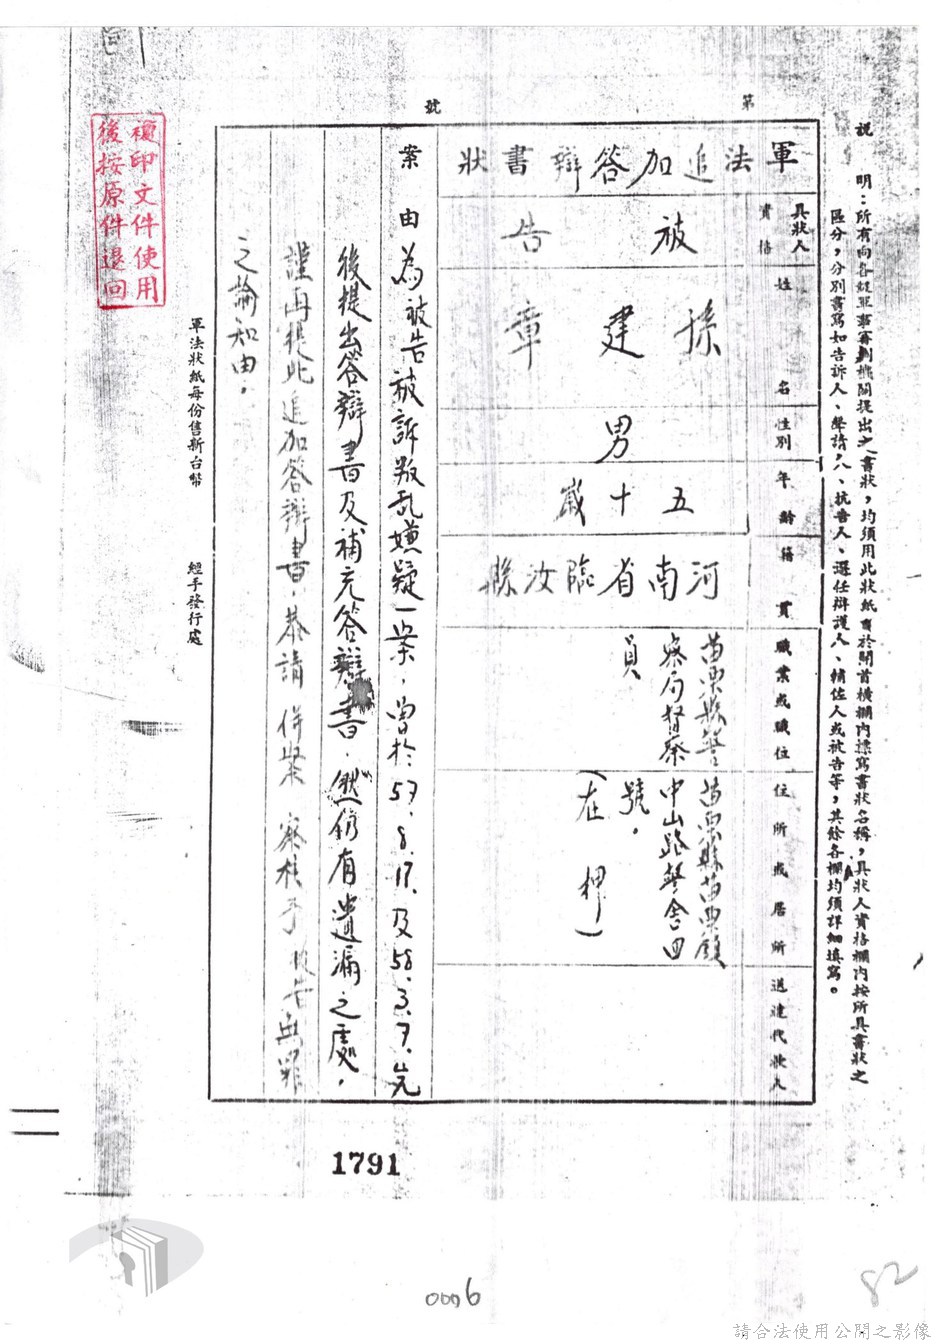 第 號
說明：所有向各級軍事審判機關提出之書狀，均須用此狀紙並於開首橫欄內標寫書狀名稱，具狀人資格欄內按所具書狀之
區分，分別書寫如告訴人、聲請人、抗告人、選任辯護人、輔佐人或被告等，其餘各欄均須詳細填寫。
軍法追加答辯書狀
具狀人資格
被告
姓名
孫建章
性別
男
年齡
五十歲
籍貫
河南省臨汝縣
職業或職位
苗栗縣警
察局督察
員
住所或居所
苗栗縣苗栗鎮
中山路警舍四
號。
（在押）
送達代收人
案由
為被告被訴叛乱嫌疑一案，曾於57.8.17.及58.3.7.先
後提出答辯書及補充答辯書，然仍有遺漏之處，
謹再提此追加答辯書，恭請併案察核予被告無罪
之諭知由。
軍法狀紙每份售新台幣
經手發行處
複印文件使用
後按原件退回
1791
0006
82
請合法使用公開之影像